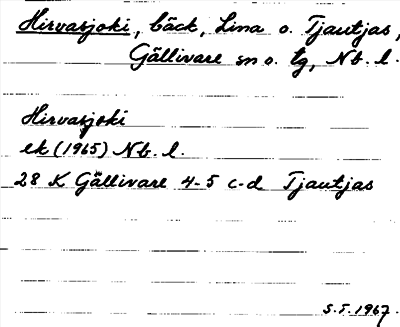 Hirvasjoki, bäck, Lina o. Tjautjas,
Gällivare sn o. tg, Nb. l.
Hirvasjoki
ek (1965) Nb. l.
28 K Gällivare 4-5 c-d Tjautjas
S.F. 1967.